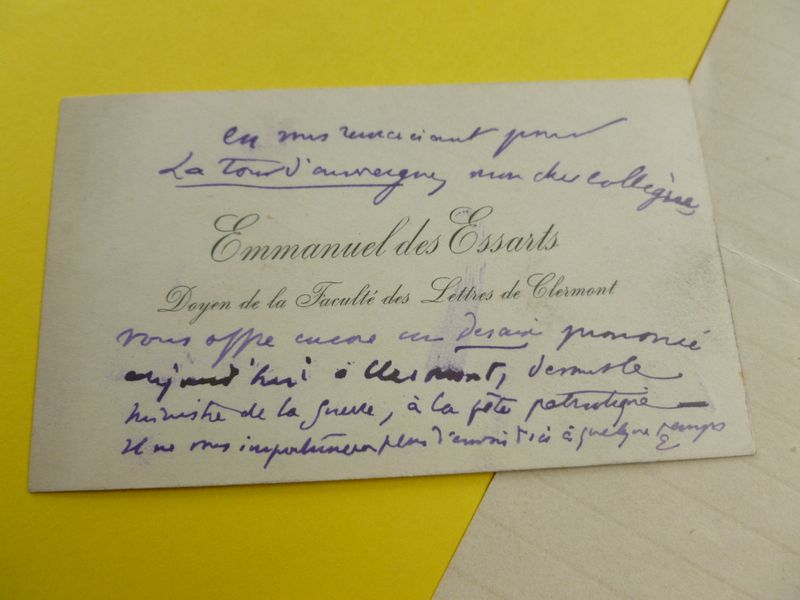 en vous remerciant pour
La Tour d'auvergne, mon cher collègue,
Emmanuel des Essarts
Doyen de la Faculté des Lettres de Clermont
vous offre encore un desaix prononcé
aujourd'hui à Clermont, devant le
ministre de la guerre, à la fête patriotique
Il ne vous importunera plus d'envois d'ici à quelque temps